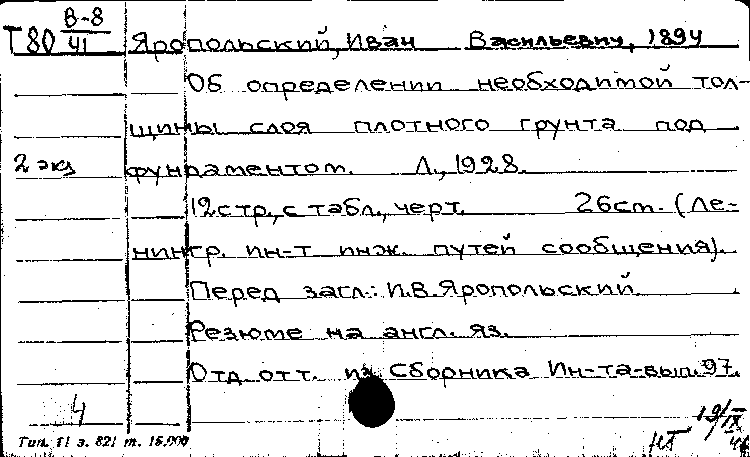 Т80 В-8/41 Яропольский, Иван Васильевич, 1894
Об определении необходимой тол-
щины слоя плотного грунта под
2 экз фундаментом. Л., 1928.
12стр., с табл., черт. 26см. (Ле-
нингр. ин-т инж. путей сообщения).
Перед загл.: И.В. Яропольский
Резюме на англ. яз.
Отд. отт. из Сборника Ин-та-вып. 97.
4
Тип. 11 з. 821 т. 15.000